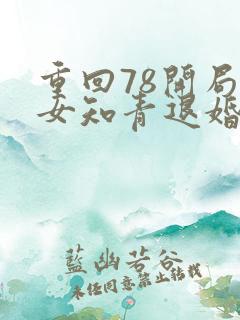 重回78開局
女知青退婚
藍幽若谷
未任同意禁止转载